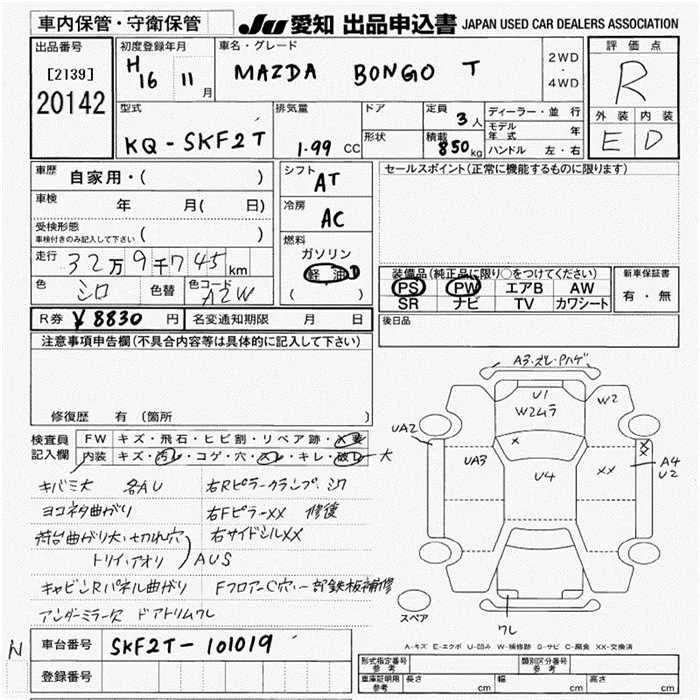 車内保管・守衛保管
JU 愛知 出品申込書 JAPAN USED CAR DEALERS ASSOCIATION
出品番号
[2139]
20142
初度登録年月
H 16 11 月
車名・グレード
MAZDA BONGO T
2WD
・
4WD
評価点
R
外装 内装
E D
型式
KQ-SKF2T
排気量
1.99 CC
ドア
形状
定員
3人
積載
850kg
ディーラー・並行
モデル年式 年
ハンドル 左・右
車歴
自家用・( )
車検
年 月( 日)
受検形態
車検付きのみ記入して下さい ( )
走行
32万9千745km
色
シロ
色替
色コード
A2W
シフト
AT
冷房
AC
燃料
ガソリン
軽油 D
( )
セールスポイント(正常に機能するものに限ります)
装備品(純正品に限り○をつけてください)
PS PW エアB AW
SR ナビ TV カワシート
新車保証書
有・無
後日品
R券 ¥8830 円
名変通知期限 月 日
注意事項申告欄(不具合内容等は具体的に記入して下さい)
修復歴 有(箇所 )
検査員記入欄
FW キズ・飛石・ヒビ割・リペア跡・X要
内装 キズ・汚レ・コゲ・穴・スレ・キレ・破レ 大
キバミ大 各AU
右Rピラークランプ.シワ
ヨコネタ曲がり
右FピラーXX 修復
荷台曲がり大.切れ穴
右サイドシルXX
トリイ.アオリ
AUS
キャビンRパネル曲がり
FフロアーC穴.一部鉄板補修
アンダーミラー欠 ドアトリムワレ
A3.ズレ.Pハゲ
U1
W2ムラ
W2
UA2
X
UA3
U4
XX
X
X
A4
U2
ワレ
スペア
A-キズ E-エクボ U-凹み W-補修跡 S-サビ C-腐食 XX-交換済
N
車台番号
SKF2T-101019
登録番号
形式指定番号 参考
類別区分番号 参考
車庫証明用 参考 長さ cm 幅 cm 高さ cm